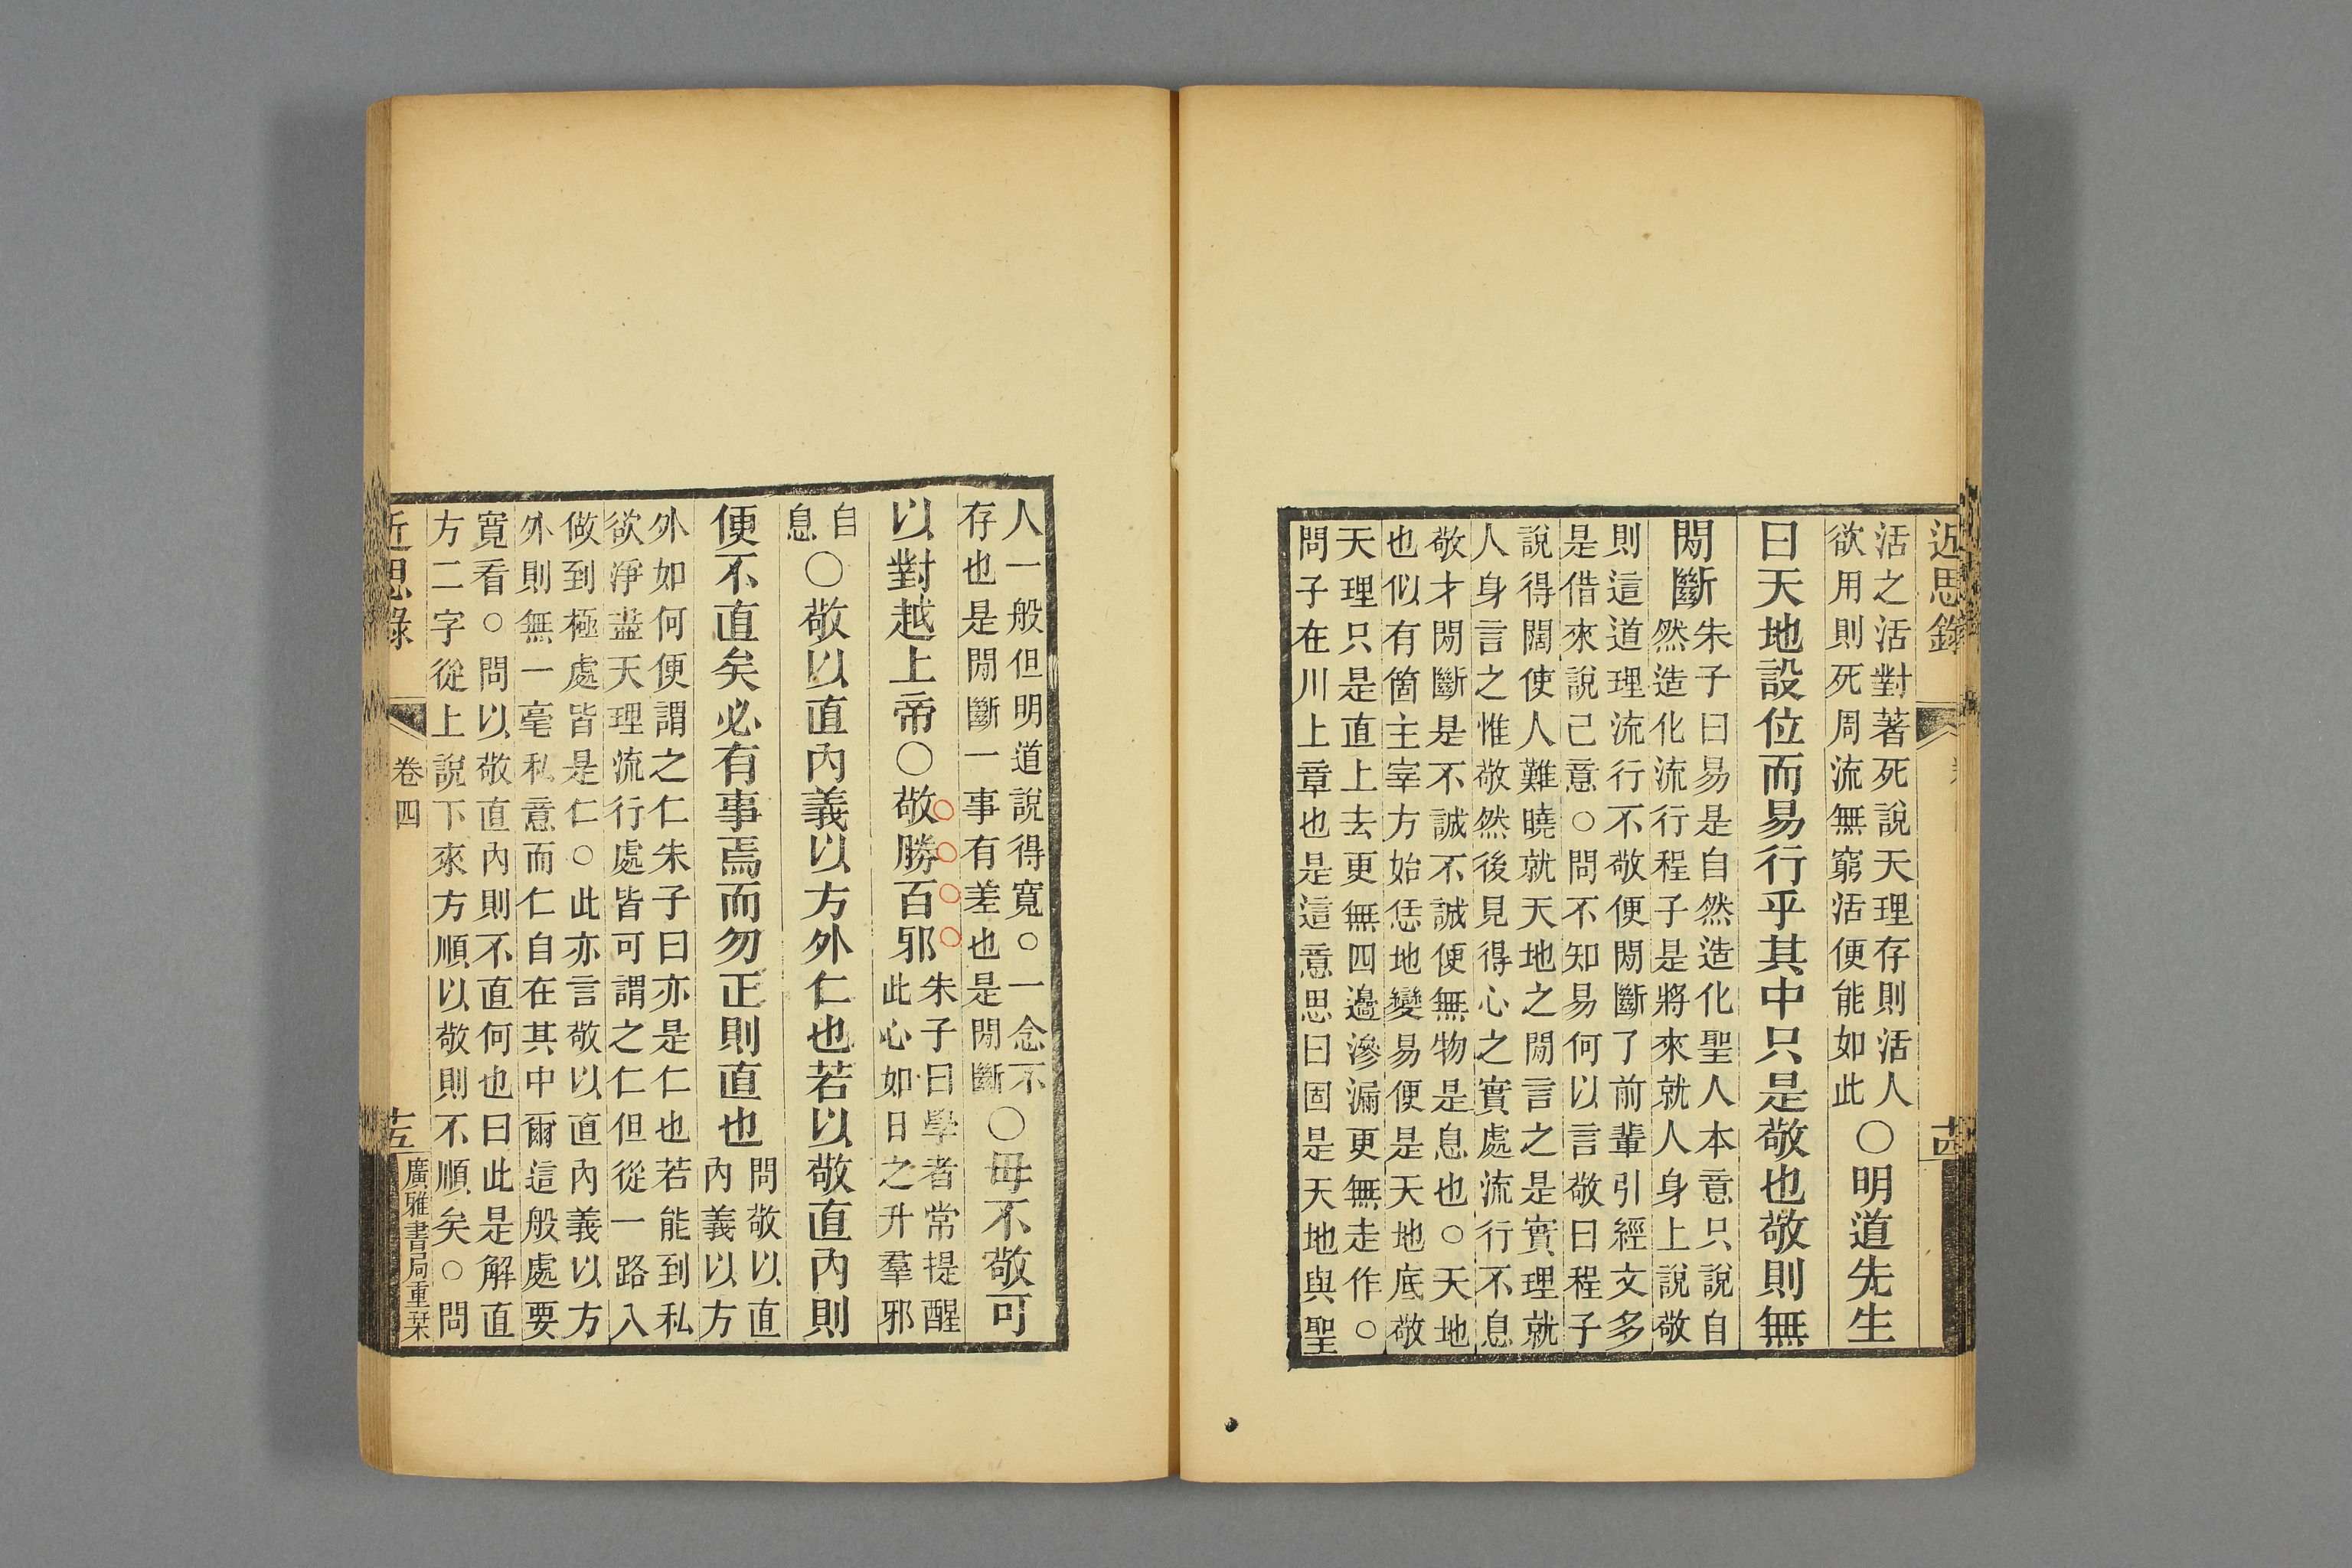 近思錄
活之活對著死說天理存則活人
欲用則死周流無窮活便能如此
○明道先生
曰天地設位而易行乎其中只是敬也敬則無
閒斷
朱子曰易是自然造化聖人本意只說自
然造化流行程子是將來就人身上說敬
則這道理流行不敬便閒斷了前輩引經文多
是借來說己意○問不知易何以言敬曰程子
說得闊使人難曉就天地之閒言之是實理就
人身言之惟敬然後見得心之實處流行不息
敬才閒斷是不誠不誠便無物是息也○天地
也似有箇主宰方始恁地變易便是天地底敬
天理只是直上去更無四邊滲漏更無走作○
問子在川上章也是這意思曰固是天地與聖
人一般但明道說得寬○一念不
存也是閒斷一事有差也是閒斷
○毋不敬可
以對越上帝○敬勝百邪
朱子曰學者常提醒
此心如日之升羣邪
自
息
○敬以直內義以方外仁也若以敬直內則
便不直矣必有事焉而勿正則直也
問敬以直
內義以方
外如何便謂之仁朱子曰亦是仁也若能到私
欲淨盡天理流行處皆可謂之仁但從一路入
做到極處皆是仁○此亦言敬以直內義以方
外則無一毫私意而仁自在其中爾這般處要
寬看○問以敬直內則不直何也曰此是解直
方二字從上說下來方順以敬則不順矣○問
近思錄
卷四
廣雅書局重栞